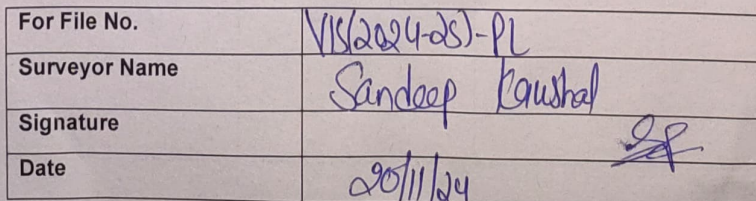 For File No. VIS(2024-25)-PL
Surveyor Name Sandeep Kaushal
Signature
Date 20/11/24